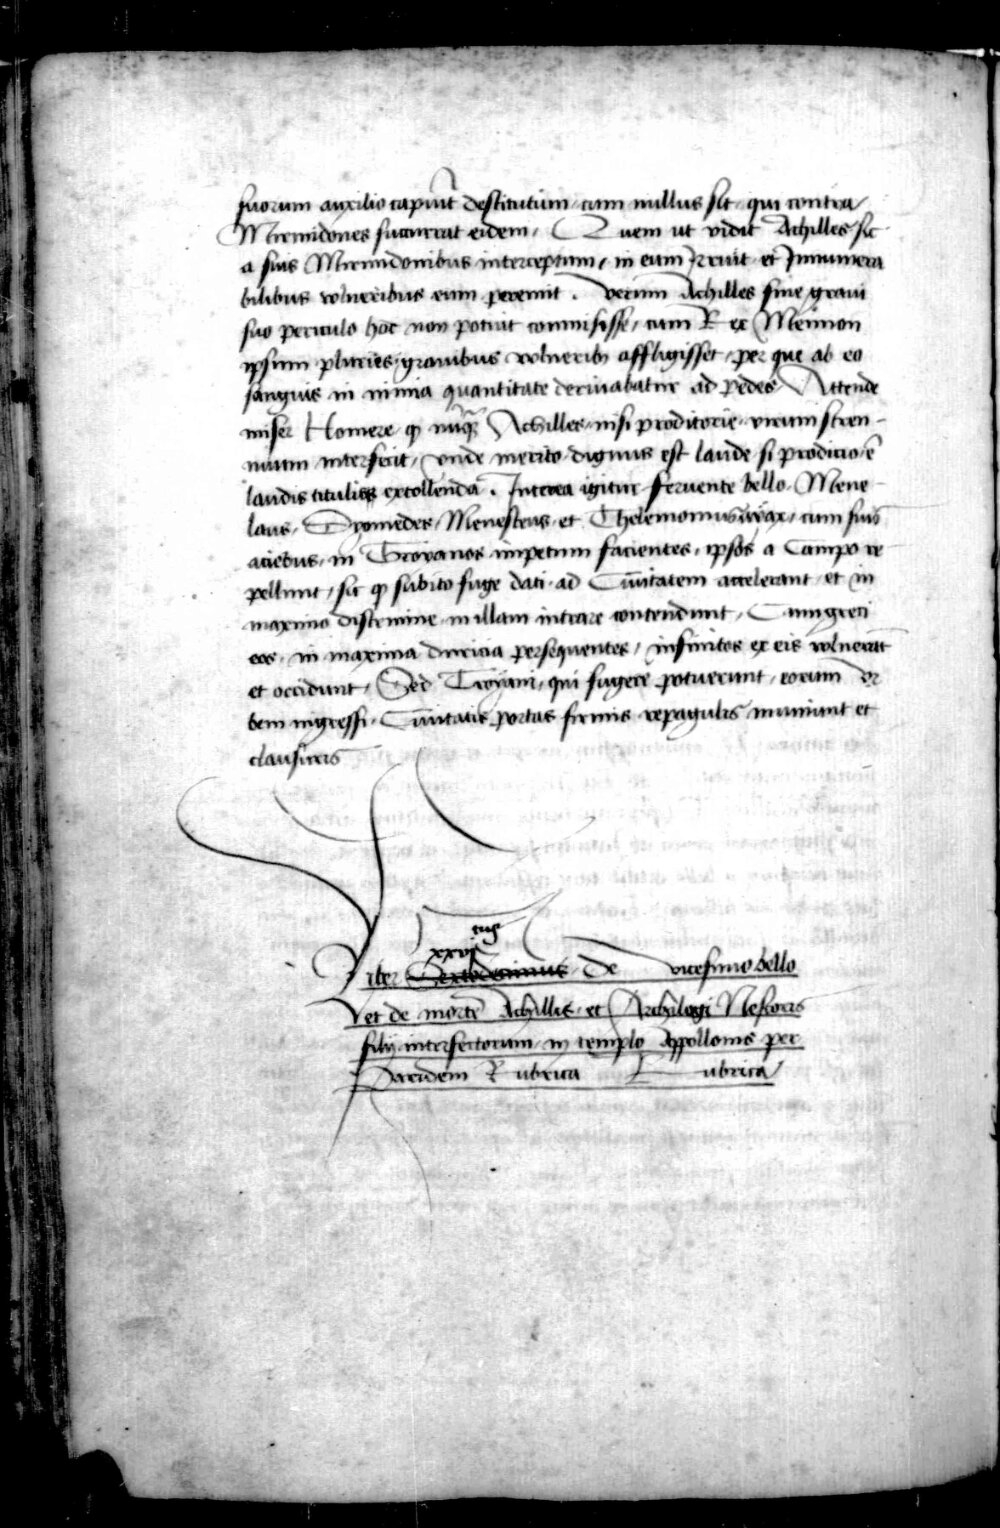 suorum auxilio capiūt destitutum cum nullus sit qui contra
Mirmidones succurrat eidem / Quem ut vidit Achilles sic
a suis Mirmidonibus interceptum / in eum Irruit et Innumera
bilibus vulneribus eum peremit . Verum Achilles sine graui
suo periculo hoc non potuit commisisse / cum Rex Mennon
ipsum pluries grauibus vulneribꝫ afflixisset / per que ab eo
sanguis in nimia quantitate deriuabatur ad pedes / Attende
miser Homere ꝙ nūqꝫ Achilles nisi proditorie virum stren-
nuum interfecit / vnde merito dignus est laude si prodicio ē
laudis titulis extollenda . Interea igitur feruente bello Mene-
laus / Dyomedes / Menesteus et Thelemonius aiax / cum suis
aciebus in Troyanos impetum facientes / ipsos a Campo re
pellunt / sic ꝙ subito fuge dati ad Ciuitatem accelerant et in
maximo discrimine in illam intrare contendunt / Cum greci
eos in maxima duricia persequentes / infinitos ex eis vulnerāt
et occidunt / Sed Troyani qui fugere potuerunt / eorum Vr
bem ingressi Ciuitatis portas firmis repagulis muniunt et
clausuris
tus
xxvi
Liber De vicesimo bello
et de morte Achillis et Archilogi Nestoris
filij interfectorum in templo Appollonis per
Paridem Rubrica Rubrica